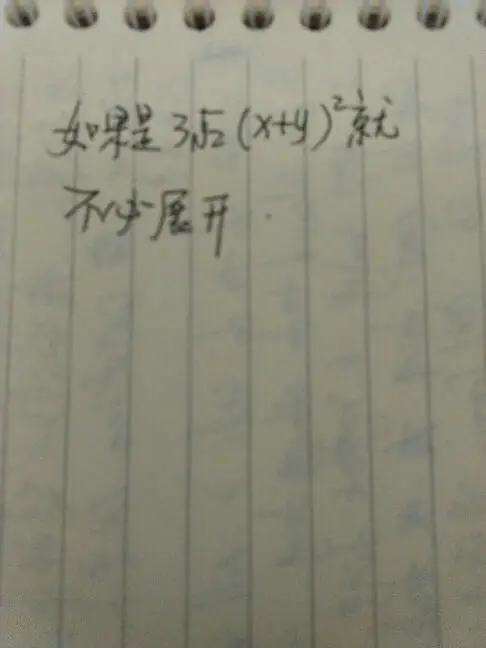 如果是3√2(x+y)²就
不必展开.